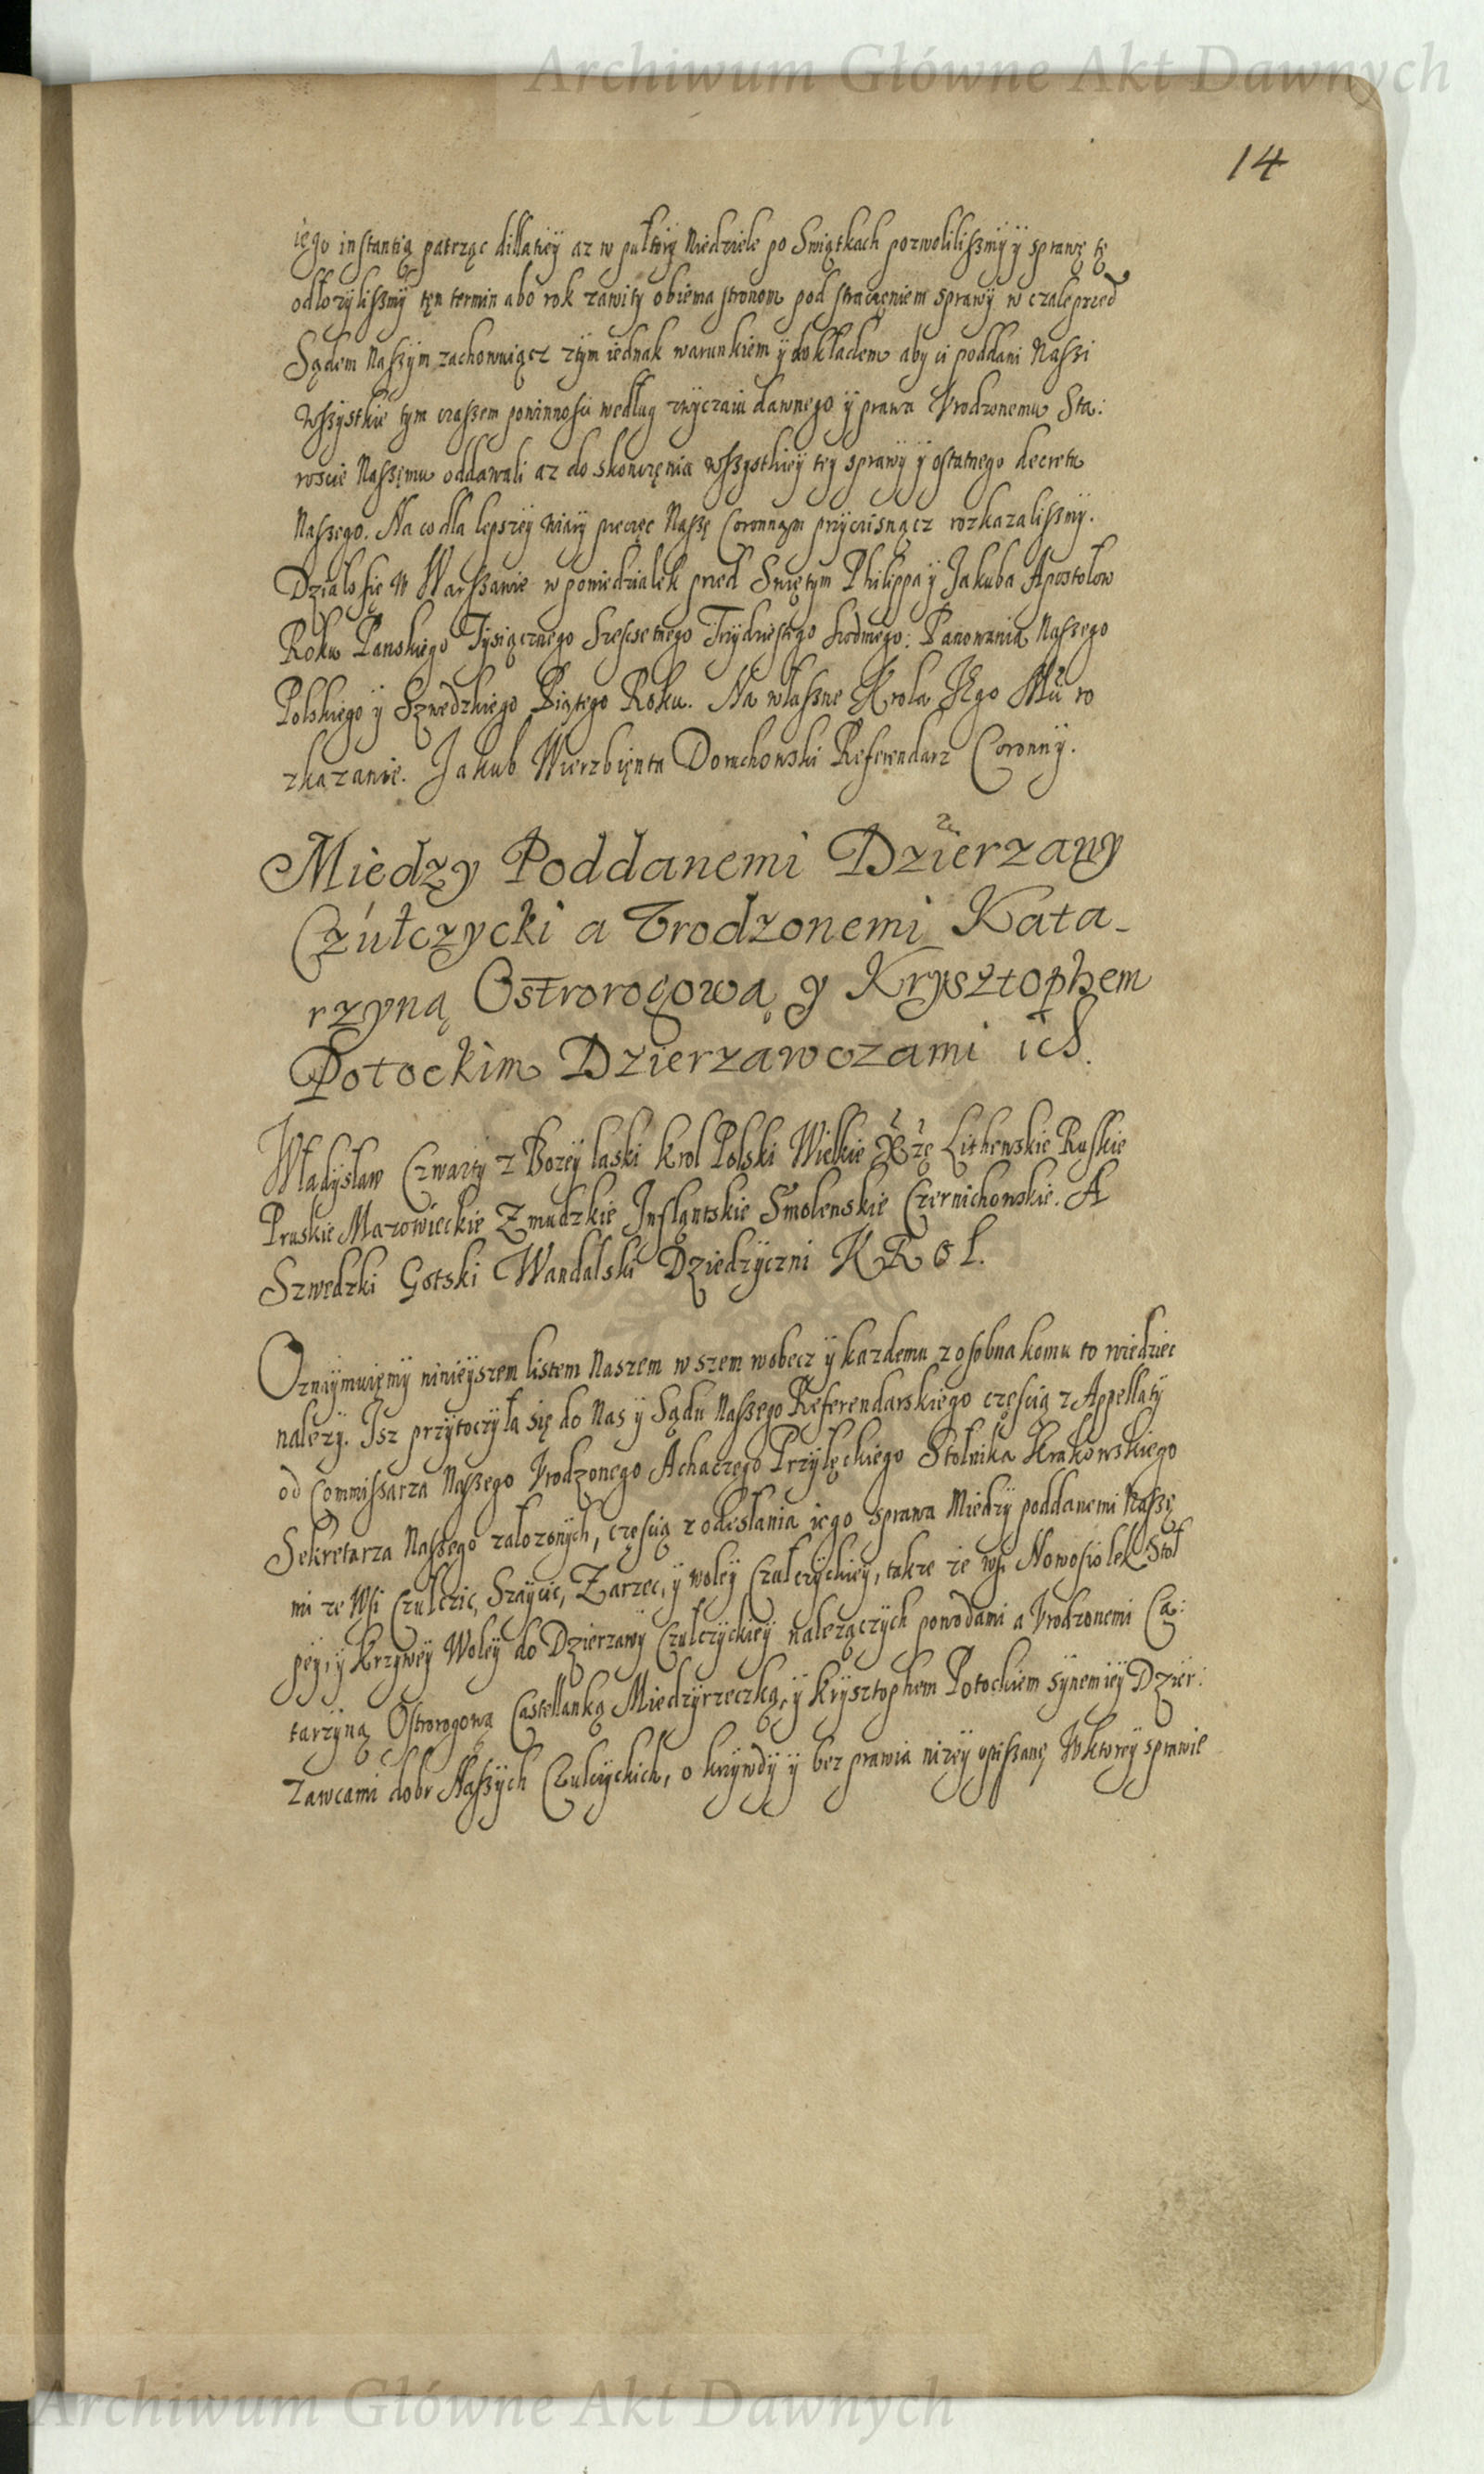 Archiwum Główne Akt Dawnych
14
iego instantią patrząc dillatiey az w pułtory Niedziele po Swiątkach pozwolilismy y sprawę tę
odłozylismy tęn termin abo rok zawity obiema stronom pod straczęniem sprawy w czale przed
Sądem Naszym zachowuiącz ztym iednak warunkiem y dokładem aby ci poddani Naszi
wszystkie tym czasem powinnosci według zwyczaiu dawnego y prawa Vrodzonemu Sta:
roscie Naszemu oddawali az do skonczęnia wszystkiey tey sprawy y ostatnego decretu
Naszego. Na co dla lepszey wiary pieczęc Naszę Coronnąm przycisnącz rozkazalismy.
Działo się w Warszawie w poniedzialek przed Swiętym Philippa y Jakuba Apostołow
Roku Panskiego Tysiącznego Szescsetnego Trzydziestego Siodmego: Panowania Naszego
Polskiego y Szwedzkiego Piątego Roku. Na własne Krola Jego Mci ro
zkazanie. Jakub Wierzbięnta Doruchowski Referendarz Coronny.
Miedzy Poddanemi Dzierzawy
Czułczycki a Vrodzonemi Kata-
rzyną Ostrorogową y Krysztophem
Potockim Dzierzawczami ich.
Władysław Czwarty z Bozey laski Krol Polski Wielkie Xżę Lithewskie Ruskie
Pruskie Mazowieckie Zmudzkie Infląntskie Smolenskie Czernichowskie. A
Szwedzki Gotski Wandalski Dziedzyczni KROL.
Oznaymuięmy ninieyszem listem Naszem wszem wobecz y kazdemu zosobna komu to wiedziec
nalezy. Isz przytoczyła się do Nas y Sądu Naszego Referendarskiego częscią z Appellaty
od Commissarza Naszego Vrodzonego Achaczego Przyłęckiego Stolnika Krakowskiego
Sekretarza Naszego załozonych, częscią z odesłania iego sprawa Miedzy poddanemi Naszę
mi ze Wsi Czulczic, Szaycic, Zarzec, y woley Czulczyckiey, takze ze wsi Nowosiołek Stoł
pey, y Krzywey Woley do Dzierzawy Czulczyckiey nalezączych powodami a Vrodzonemi Ca:
tarzyną Ostrorogową Castellanką Miedzyrzeczką, y Krysztophem Potockiem synem iey Dzier:
zawcami dobr Naszych Czulczyckich, o krzywdy y bezprawia nizey opiszanę W ktorey sprawie
Archiwum Główne Akt Dawnych